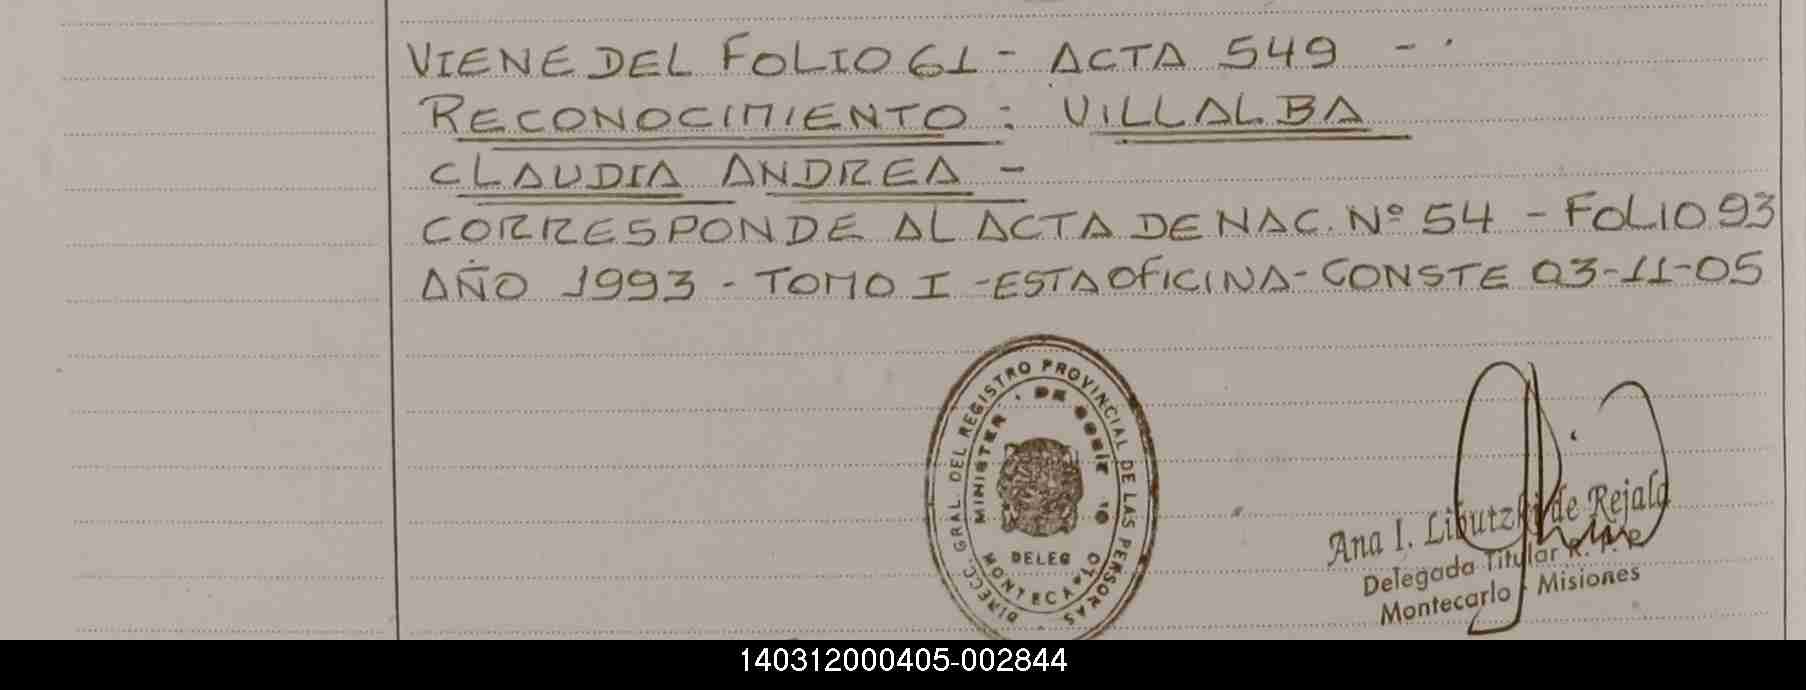 VIENE DEL FOLIO 61 - ACTA 549 - .
RECONOCIMIENTO : VILLALBA
CLAUDIA ANDREA -
CORRESPONDE AL ACTA DE NAC. Nº 54 - FOLIO 93
AÑO 1993 - TOMO I - ESTA OFICINA - CONSTE 03-11-05
DIRECC. GRAL. DEL REGISTRO PROVINCIAL DE LAS PERSONAS
MINISTER DE GOB
DELEG
MONTECARLO
Ana I. de Rejala
Delegada Titular R. P. P.
Montecarlo - Misiones
140312000405-002844